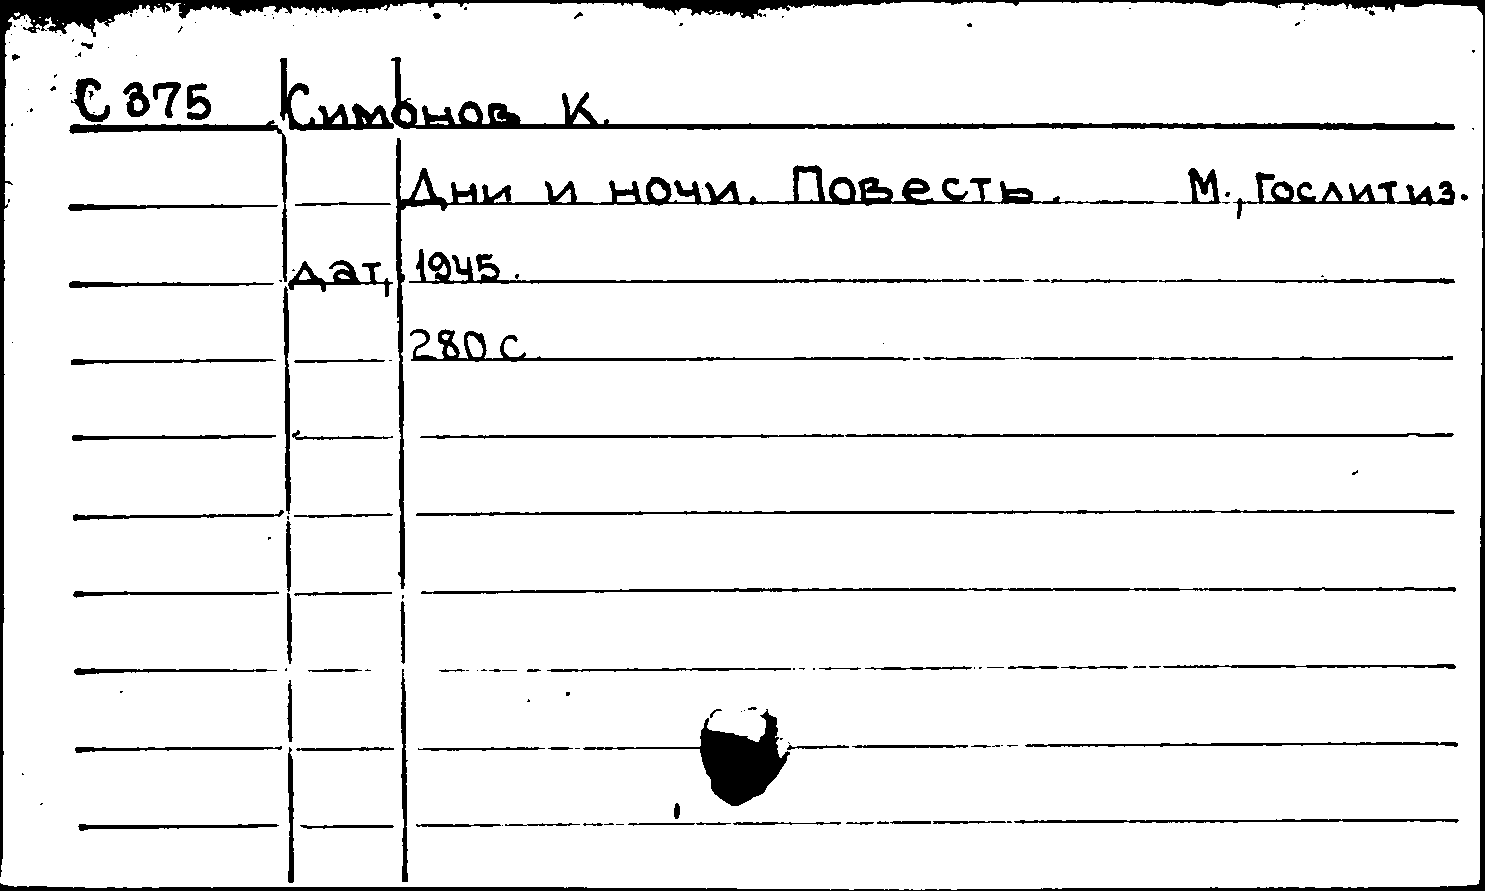 С 375 Симонов К.
Дни и ночи. Повесть. М., Гослитиз.
дат, 1945.
280 с.